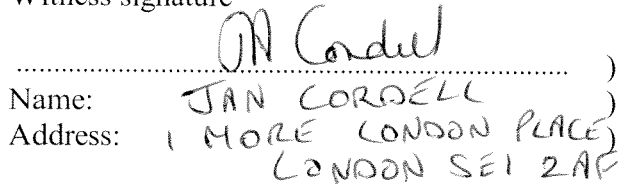 Witness signature
JA Cordell
.................................................................... )
Name: JAN CORDELL )
Address: 1 MORE LONDON PLACE )
LONDON SE1 2AF